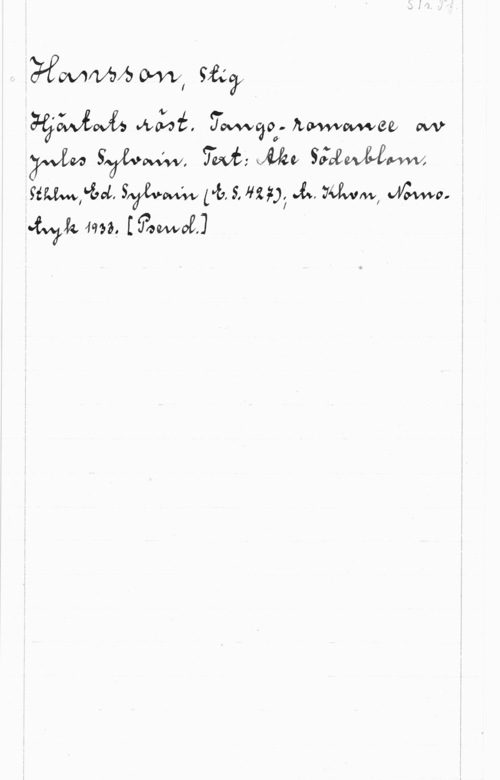 Hansson, Stig
Hjärtats röst. Tango-romance av
Jules Sylvain. Text: Åke Söderblom.
Sthlm, Ed. Sylvain (E.S. 427); tr. Khvn, Nomo-
tryk 1933. [Pseud.]